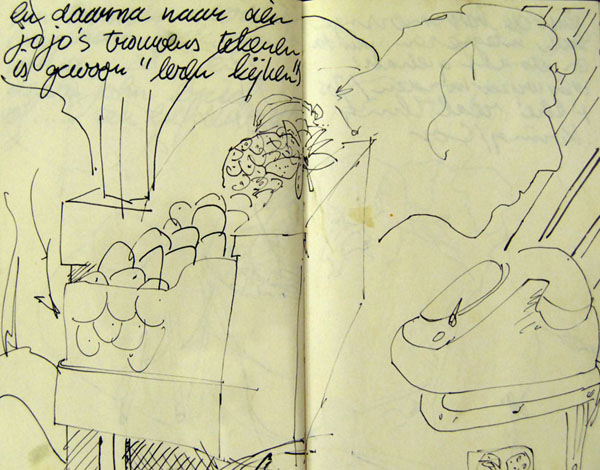 en daarna naar
jojo's trouwens tekenen
is gewoon "leren kijken"